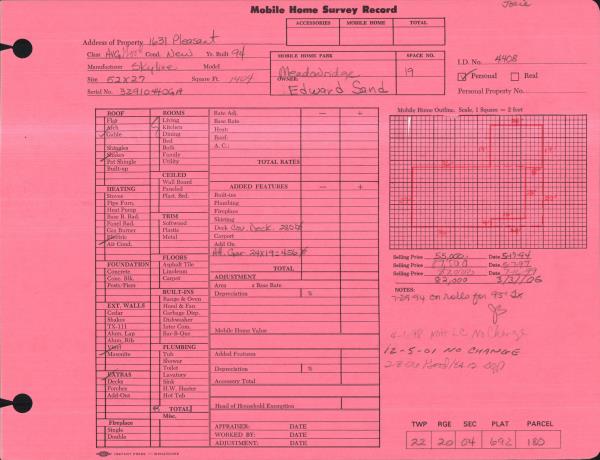 Josie
Mobile Home Survey Record
ACCESSORIES MOBILE HOME TOTAL
Address of Property 1631 Pleasant
Class AVG Cond. New Yr. Built 94
Manufacturer Skyline Model
Size 52x27 Square Ft. 1404
Serial No.
MOBILE HOME PARK SPACE NO.
Meadowridge 19
OWNER:
Edward Sand
I.D. No. 4408
Personal Real
Personal Property No.
ROOF
Flat
Arch
Gable
Shingles
Shakes
Pat Shingle
Built-up
HEATING
Stoves
Pipe Furn.
Heat Pump
Base B. Rad.
Panel Rad.
Gas Burner
Electric
Air Cond.
FOUNDATION
Concrete
Conc. Blk.
Posts/Piers
EXT. WALLS
Cedar
Shakes
TX-111
Alum. Lap
Alum. Rib
Vinyl
Masonite
EXTRAS
Decks
Porches
Add-Out
Fireplace
Single
Double
ROOMS
Living
Kitchen
Dining
Bed
Bath
Family
Utility
CEILED
Wall Board
Paneled
Plast. Brd.
TRIM
Softwood
Plastic
Metal
FLOORS
Asphalt Tile
Linoleum
Carpet
BUILT-INS
Range & Oven
Hood & Fan
Garbage Disp.
Dishwasher
Inter Com.
Bar-B-Que
PLUMBING
Tub
Shower
Toilet
Lavatory
Sink
H.W. Heater
Hot Tub
TOTAL
Misc.
Rate Adj. — +
Base Rate
Heat:
Roof:
A. C.:
TOTAL RATES
ADDED FEATURES — +
Built-ins
Plumbing
Fireplace
Skirting
Deck Cov. Deck
Carport
Add On
Att. Gar 24x19=456
TOTAL
ADJUSTMENT
Area x Base Rate
Depreciation %
Mobile Home Value
Added Features
Depreciation %
Accessory Total
Head of Household Exemption
APPRAISER: DATE
WORKED BY: DATE
ADJUSTMENT: DATE
Mobile Home Outline. Scale, 1 Square = 2 feet
Selling Price 55,000 Date 5-17-94
Selling Price Date
Selling Price Date
82,000 3/31/06
NOTES:
7-29-94 on rolls for 95
No Change
12-5-01 NO CHANGE
TWP RGE SEC PLAT PARCEL
22 20 04 692 180